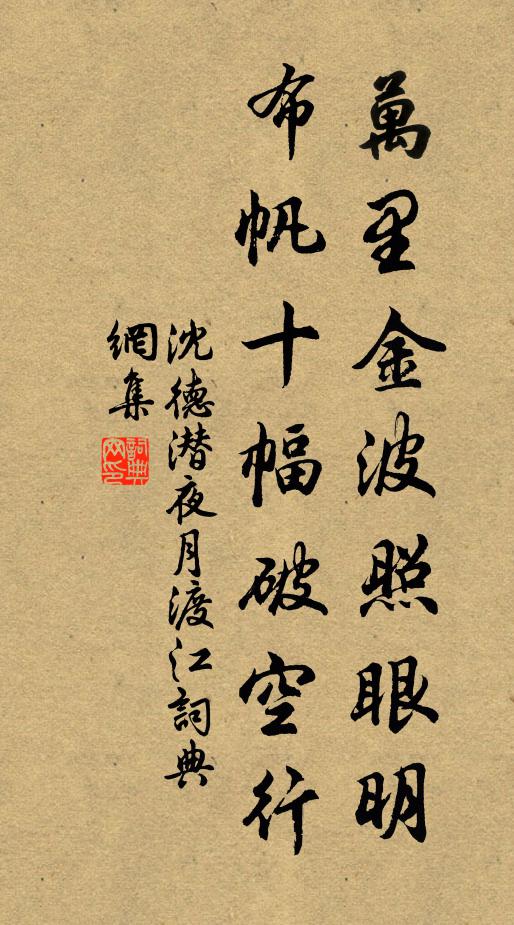 萬里金波照眼明
布帆十幅破空行
沈德潛夜月渡江詞典
網集
詞典
网印